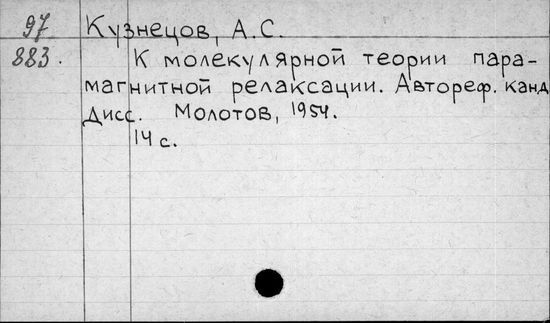 97 Кузнецов, А.С.
883. К молекулярной теории пара-
магнитной релаксации. Автореф. канд
дисс. Молотов, 1954.
14 с.